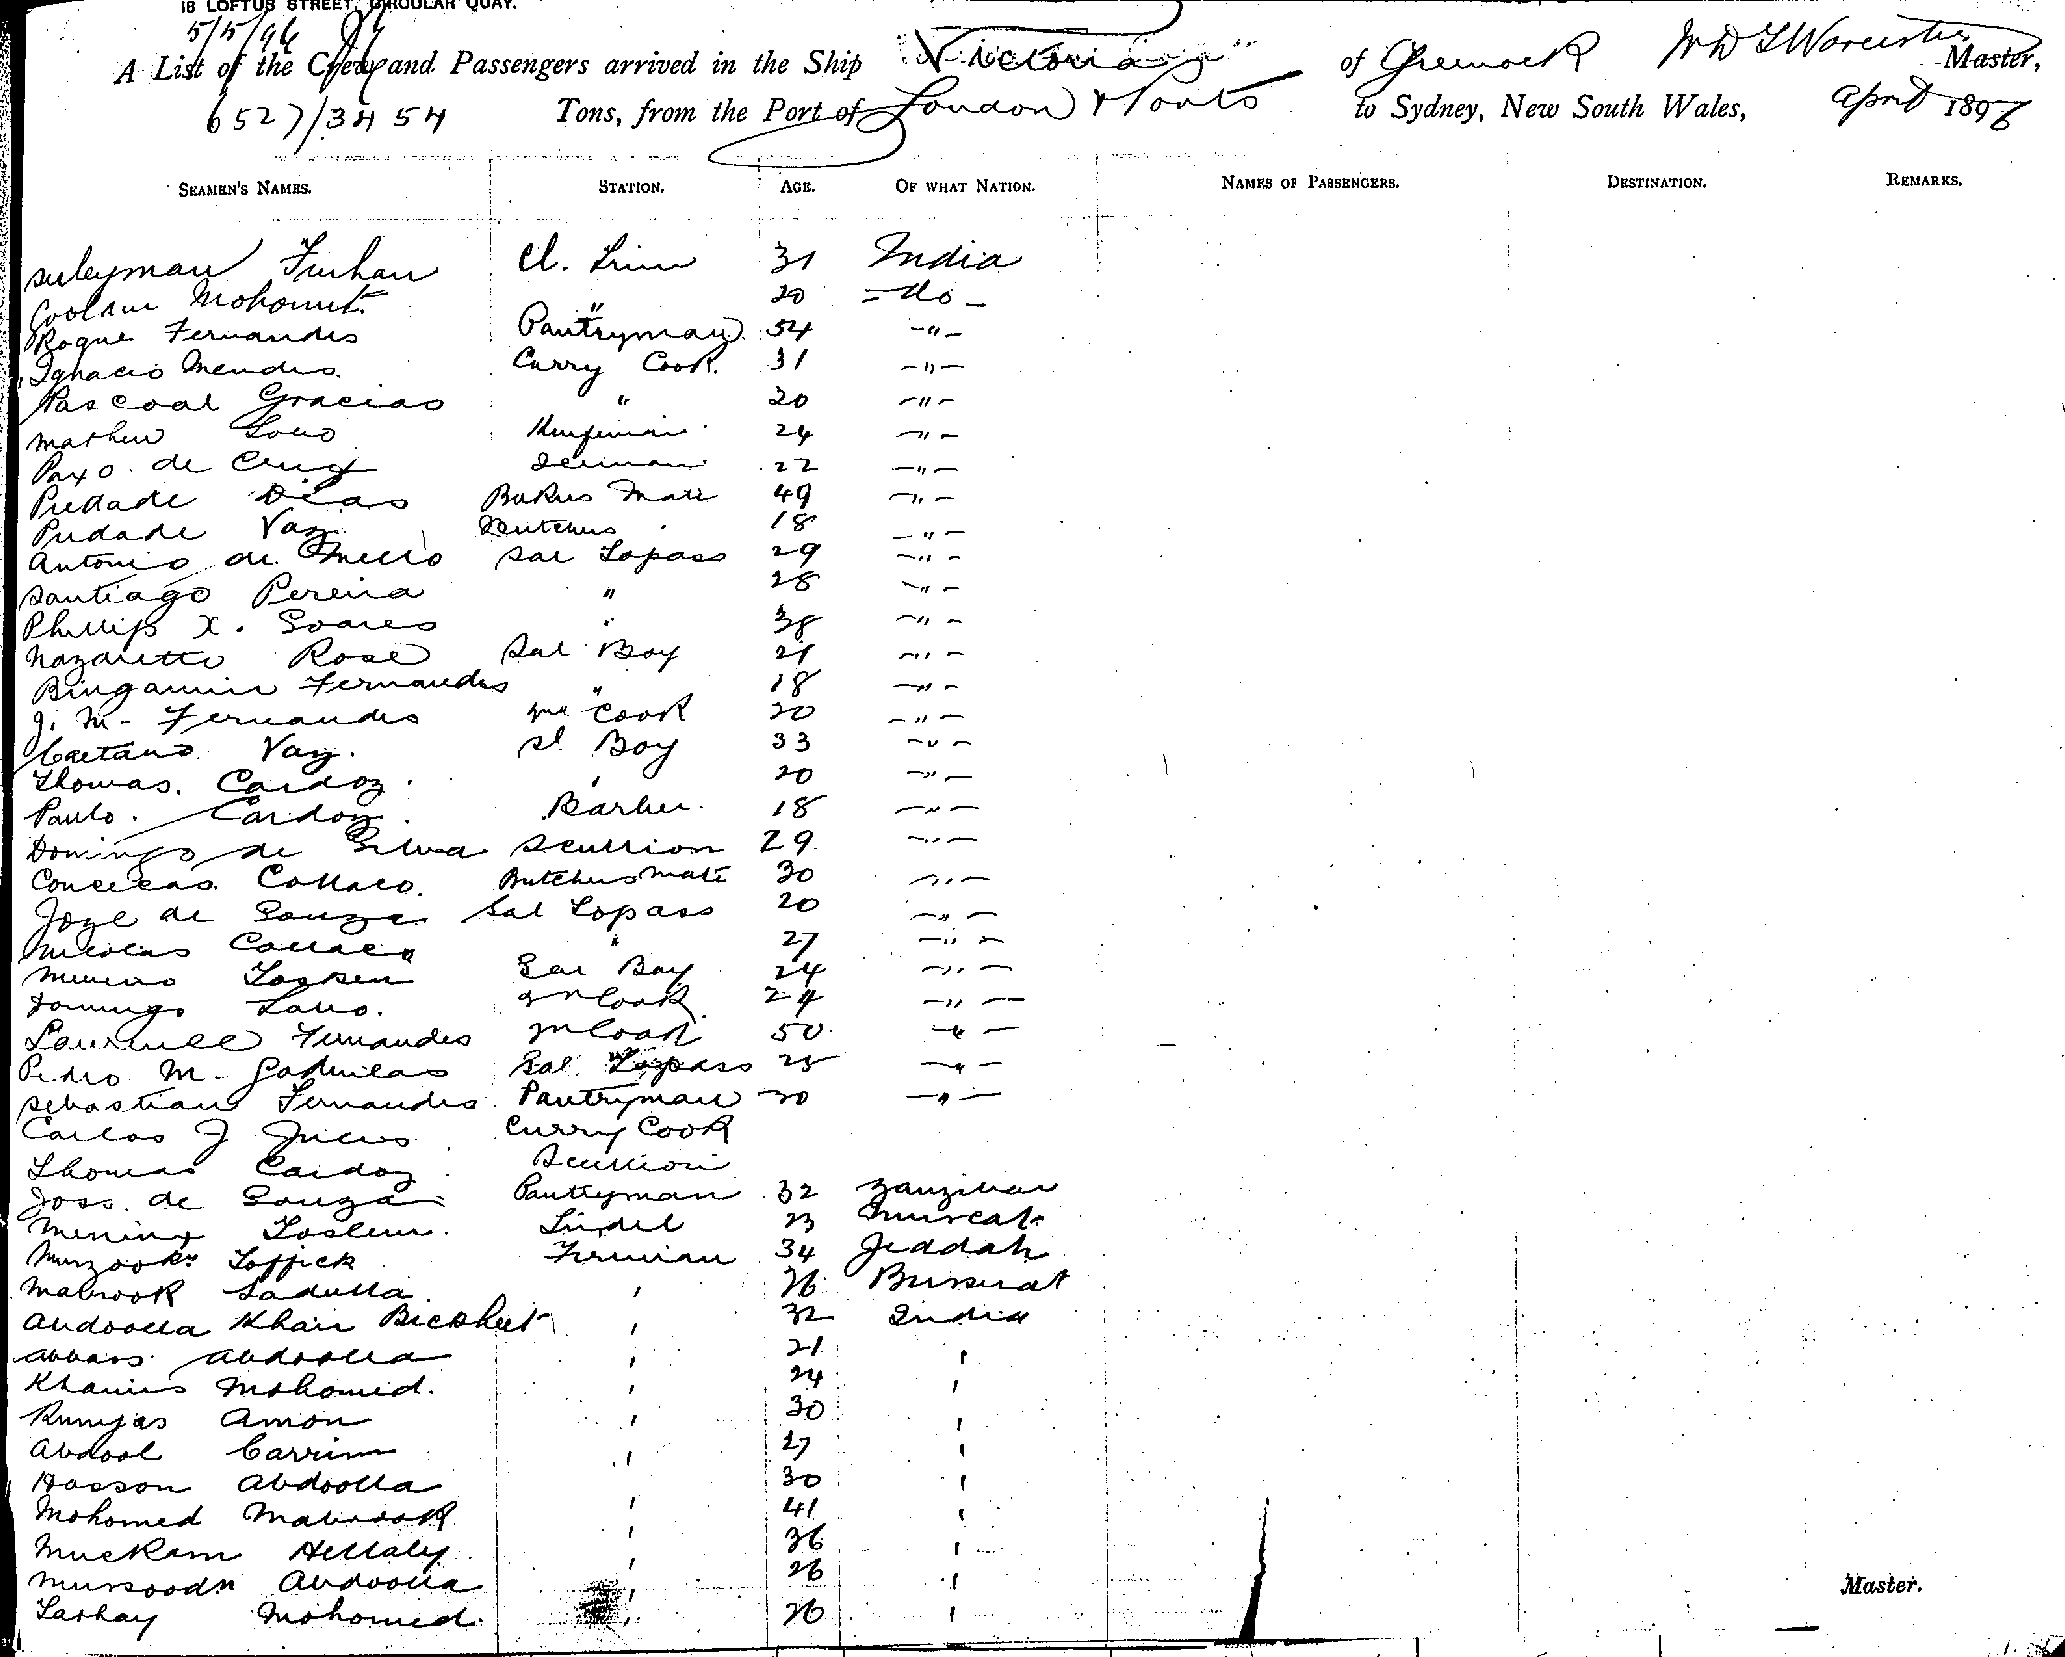 18 LOFTUS STREET, CIRCULAR QUAY.
5/5/96
A List of the Crew and Passengers arrived in the Ship "Victoria" of Greenock W D G Worcester Master,
6527/3454 Tons, from the Port of London & Ports to Sydney, New South Wales, April 1896
SEAMEN'S NAMES. STATION. AGE. OF WHAT NATION. NAMES OF PASSENGERS. DESTINATION. REMARKS.
Suleyman Furhan Cl. Trim 31 India
Goolam Mohomet " 20 - do -
Roque Fernandes Pantryman 54 - " -
Ignacio Mendes Curry Cook 31 - " -
Pascoal Gracias " 20 - " -
Mathew Lobo 24 - " -
Paxo. de Cruz 22 - " -
Piedade Dias Bakers Mate 49 - " -
Piedade Vaz Butchers " 18 - " -
Antonio de Mello Sal Topass 29 - " -
Santiago Pereira " 28 - " -
Phillip X. Soares " 38 - " -
Nazarette Rose Sal Boy 21 - " -
Bingamin Fernandes " 18 - " -
J. M. Fernandes Cook 20 - " -
Caetano Vaz. Sl. Boy 33 - " -
Thomas. Cardoz. " 20 - " -
Paulo. Cardoz. Barber. 18 - " -
Domingo de Silva Scullion 29 - " -
Conceicao Collaco. Butchers Mate 30 - " -
Joze de Souza Sal Topass 20 - " -
Nicolas Collaco " 27 - " -
Sal Boy 24 - " -
Domingo Lobo. Cook 24 - " -
Lawrence Fernandes Cook 50 - " -
Pedro M. Sal Topass 25 - " -
Sebastian Fernandes Pantryman 30 - " -
Carlos J Curry Cook
Thomas Cardoz Scullion
Joss. de Souza Pantryman 32 Zanzibar
Tindel 23 Muscat
Murzook Toffick Fireman 34 Jeddah
Mabrook Sadulla " 26 Bussurat
Abdoolla Khair Bickheet " 32 India
Abbars Abdoolla " 21 "
Khamis Mohomed. " 24 "
Rumjas Amon " 30 "
Abdool Carrim " 27 "
Hasson Abdoolla " 30 "
Mohomed Mabrook " 41 "
Muckam Hellaly " 36 "
Abdoolla " 26 "
Mohomed. " 26 "
Master.